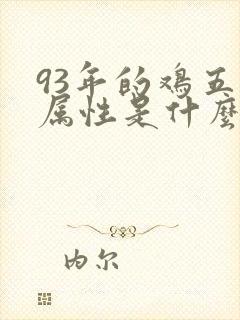 93年的鸡五
属性是什麼
内尔